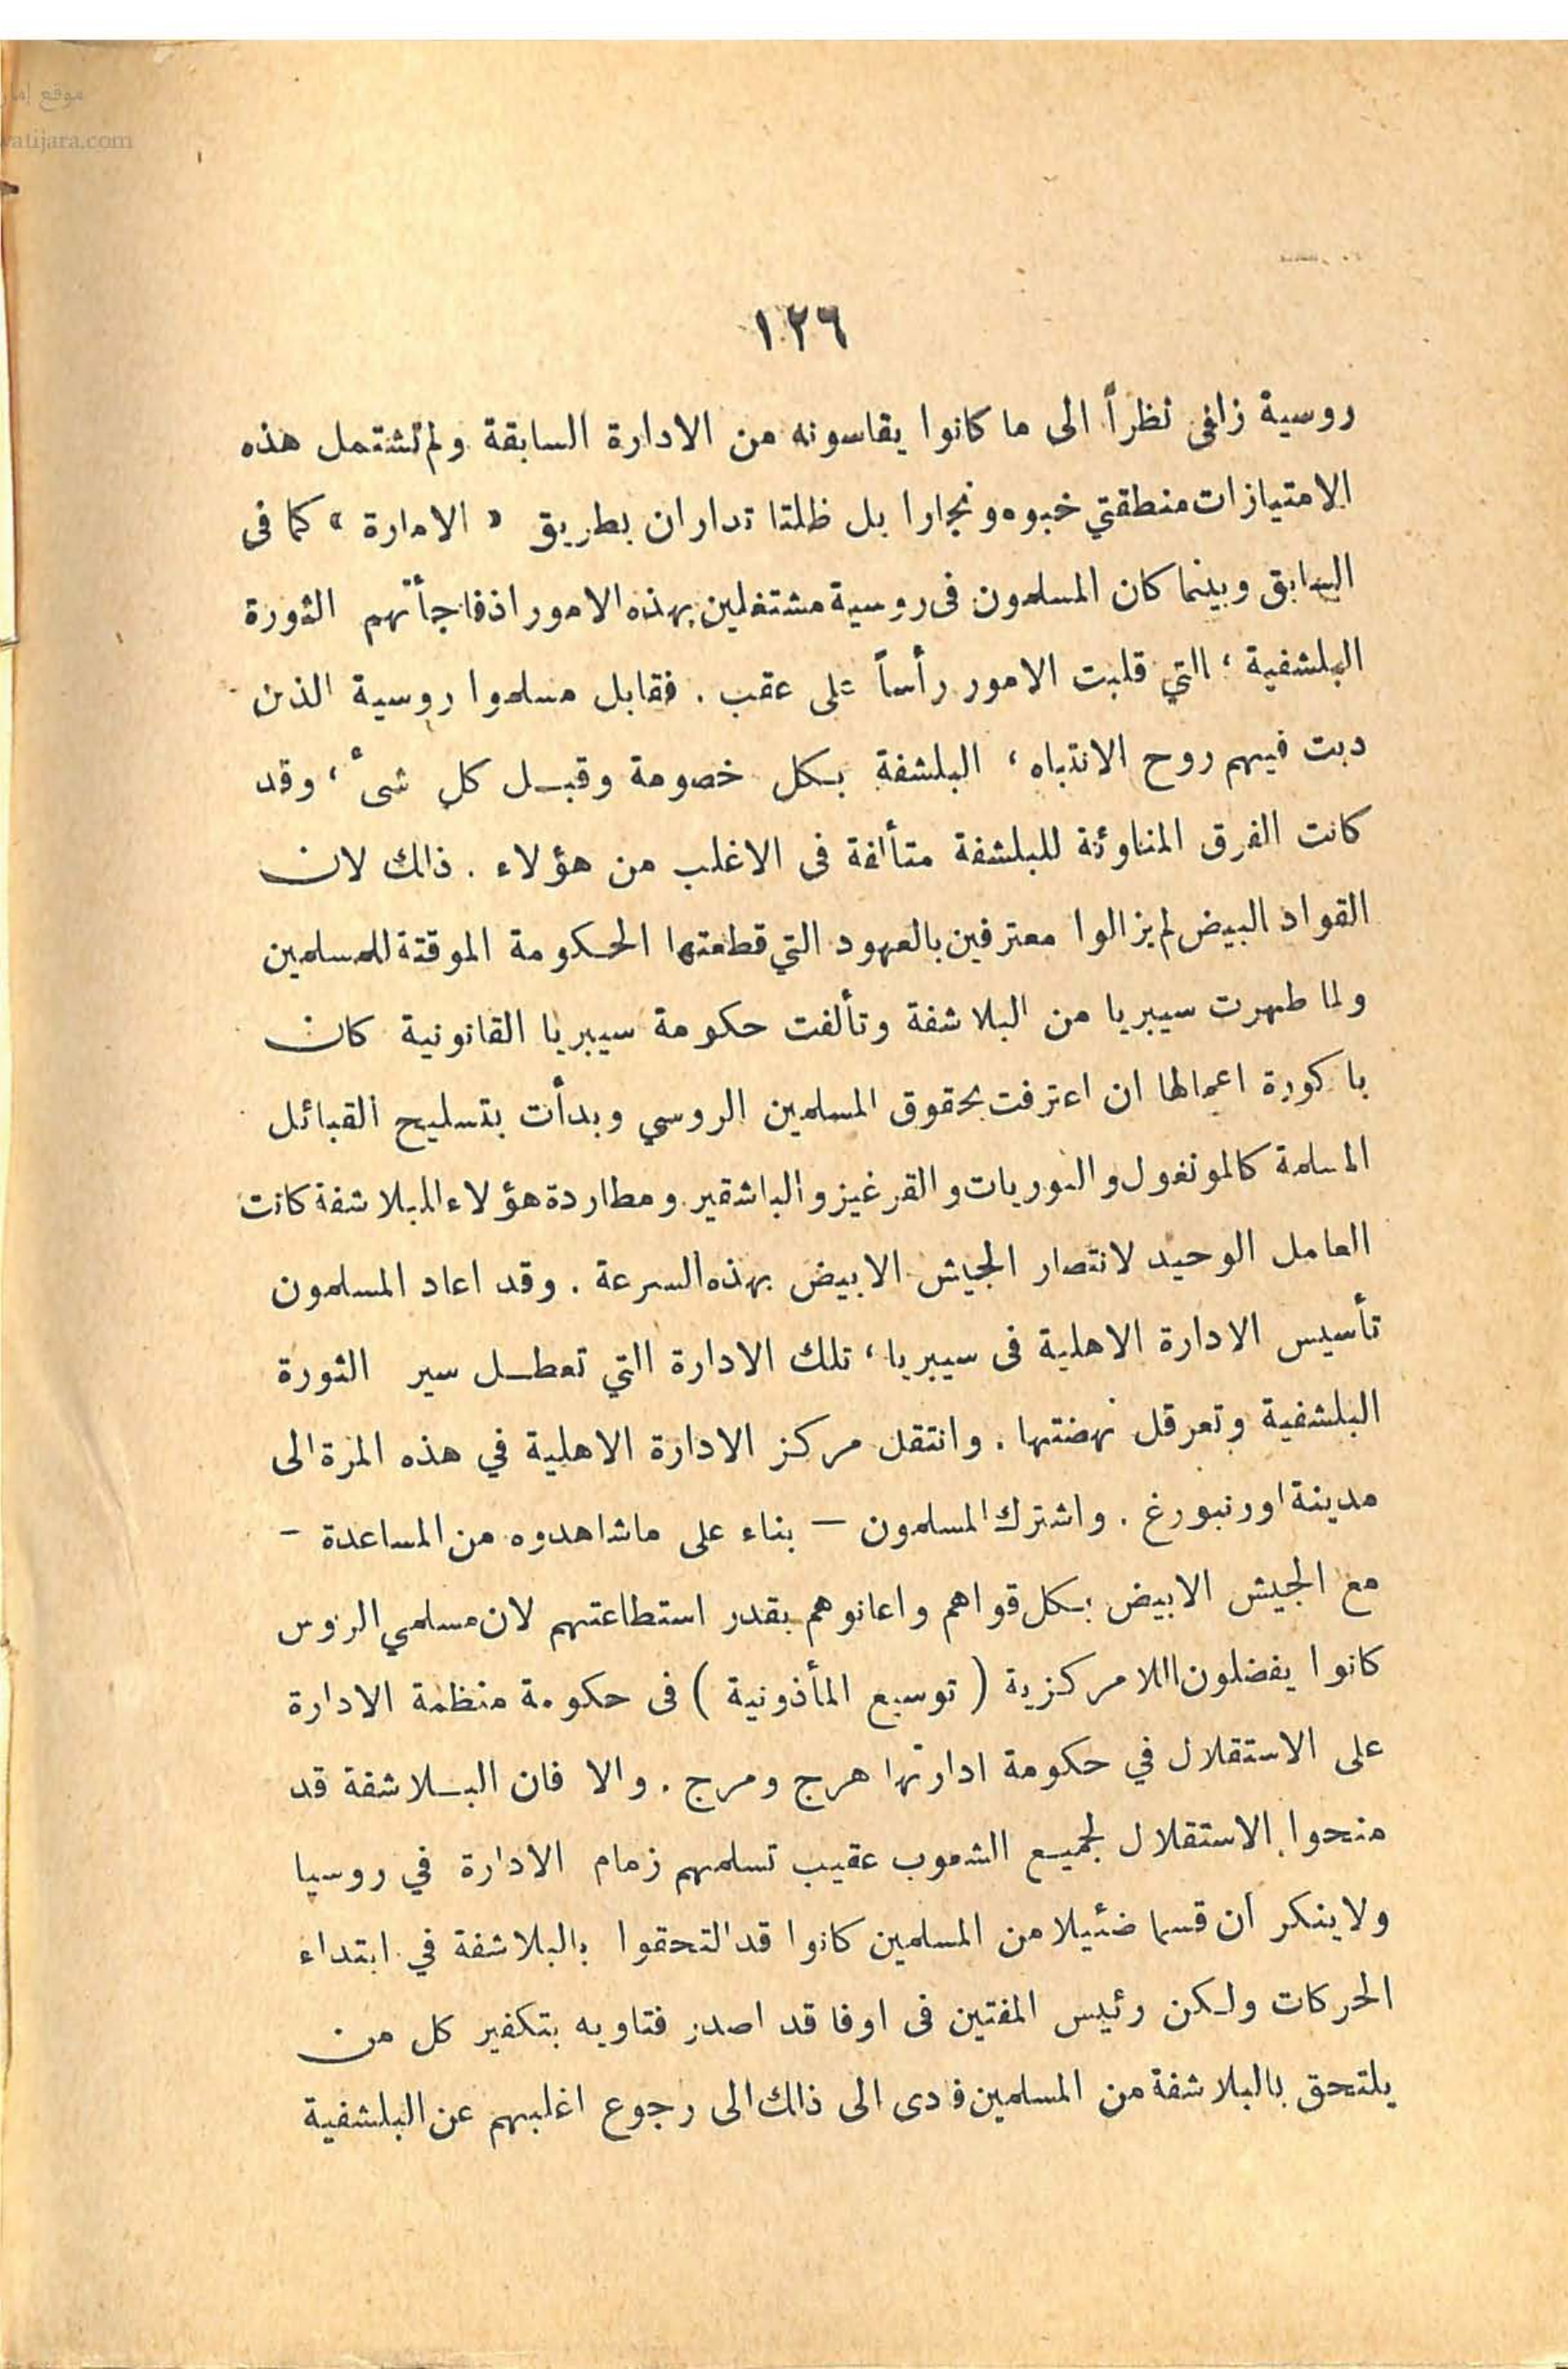 موقع إمار
watijara.com
١٢٦
روسية زلفى نظراً الى ما كانوا يقاسونه من الادارة السابقة ولم تشتمل هذه
الامتيازات منطقتي خيوه وبخارا بل ظلتا تداران بطريق « الامارة » كما فى
السابق وبينما كان المسلمون فى روسية مشتغلين بهذه الامور اذ فاجأتهم الثورة
البلشفية ، التي قلبت الامور رأساً على عقب . فقابل مسلموا روسية الذن
دبت فيهم روح الانتباه ، البلشفة بكل خصومة وقبل كل شىء ، وقد
كانت الفرق المناوئة للبلشفة متألفة فى الاغلب من هؤلاء . ذالك لان
القواد البيض لم يزالوا معترفين بالعهود التي قطعتها الحكومة الموقتة للمسلمين
ولما طهرت سيبريا من البلاشفة وتألفت حكومة سيبريا القانونية كان
باكورة اعمالها ان اعترفت بحقوق المسلمين الروسي وبدأت بتسليح القبائل
المسلمة كالمونغول والبوريات والقرغيز والباشقير ومطاردة هؤلاء البلاشفة كانت
العامل الوحيد لانتصار الجيش الابيض بهذه السرعة . وقد اعاد المسلمون
تأسيس الادارة الاهلية فى سيبريا ، تلك الادارة التي تعطل سير الثورة
البلشفية وتعرقل نهضتها . وانتقل مركز الادارة الاهلية في هذه المرة الى
مدينة اورنبورغ . واشترك المسلمون — بناء على ماشاهدوه من المساعدة —
مع الجيش الابيض بكل قواهم واعانوهم بقدر استطاعتهم لان مسلمي الروس
كانوا يفضلون اللامركزية ( توسيع المأذونية ) فى حكومة منظمة الادارة
على الاستقلال في حكومة ادارتها هرج ومرج . والا فان البلاشفة قد
منحوا الاستقلال لجميع الشعوب عقيب تسلمهم زمام الادارة في روسيا
ولاينكر ان قسما ضئيلا من المسلمين كانوا قد التحقوا بالبلاشفة في ابتداء
الحركات ولكن رئيس المفتين فى اوفا قد اصدر فتاويه بتكفير كل من
يلتحق بالبلاشفة من المسلمين فادى الى ذالك الى رجوع اغلبهم عن البلشفية